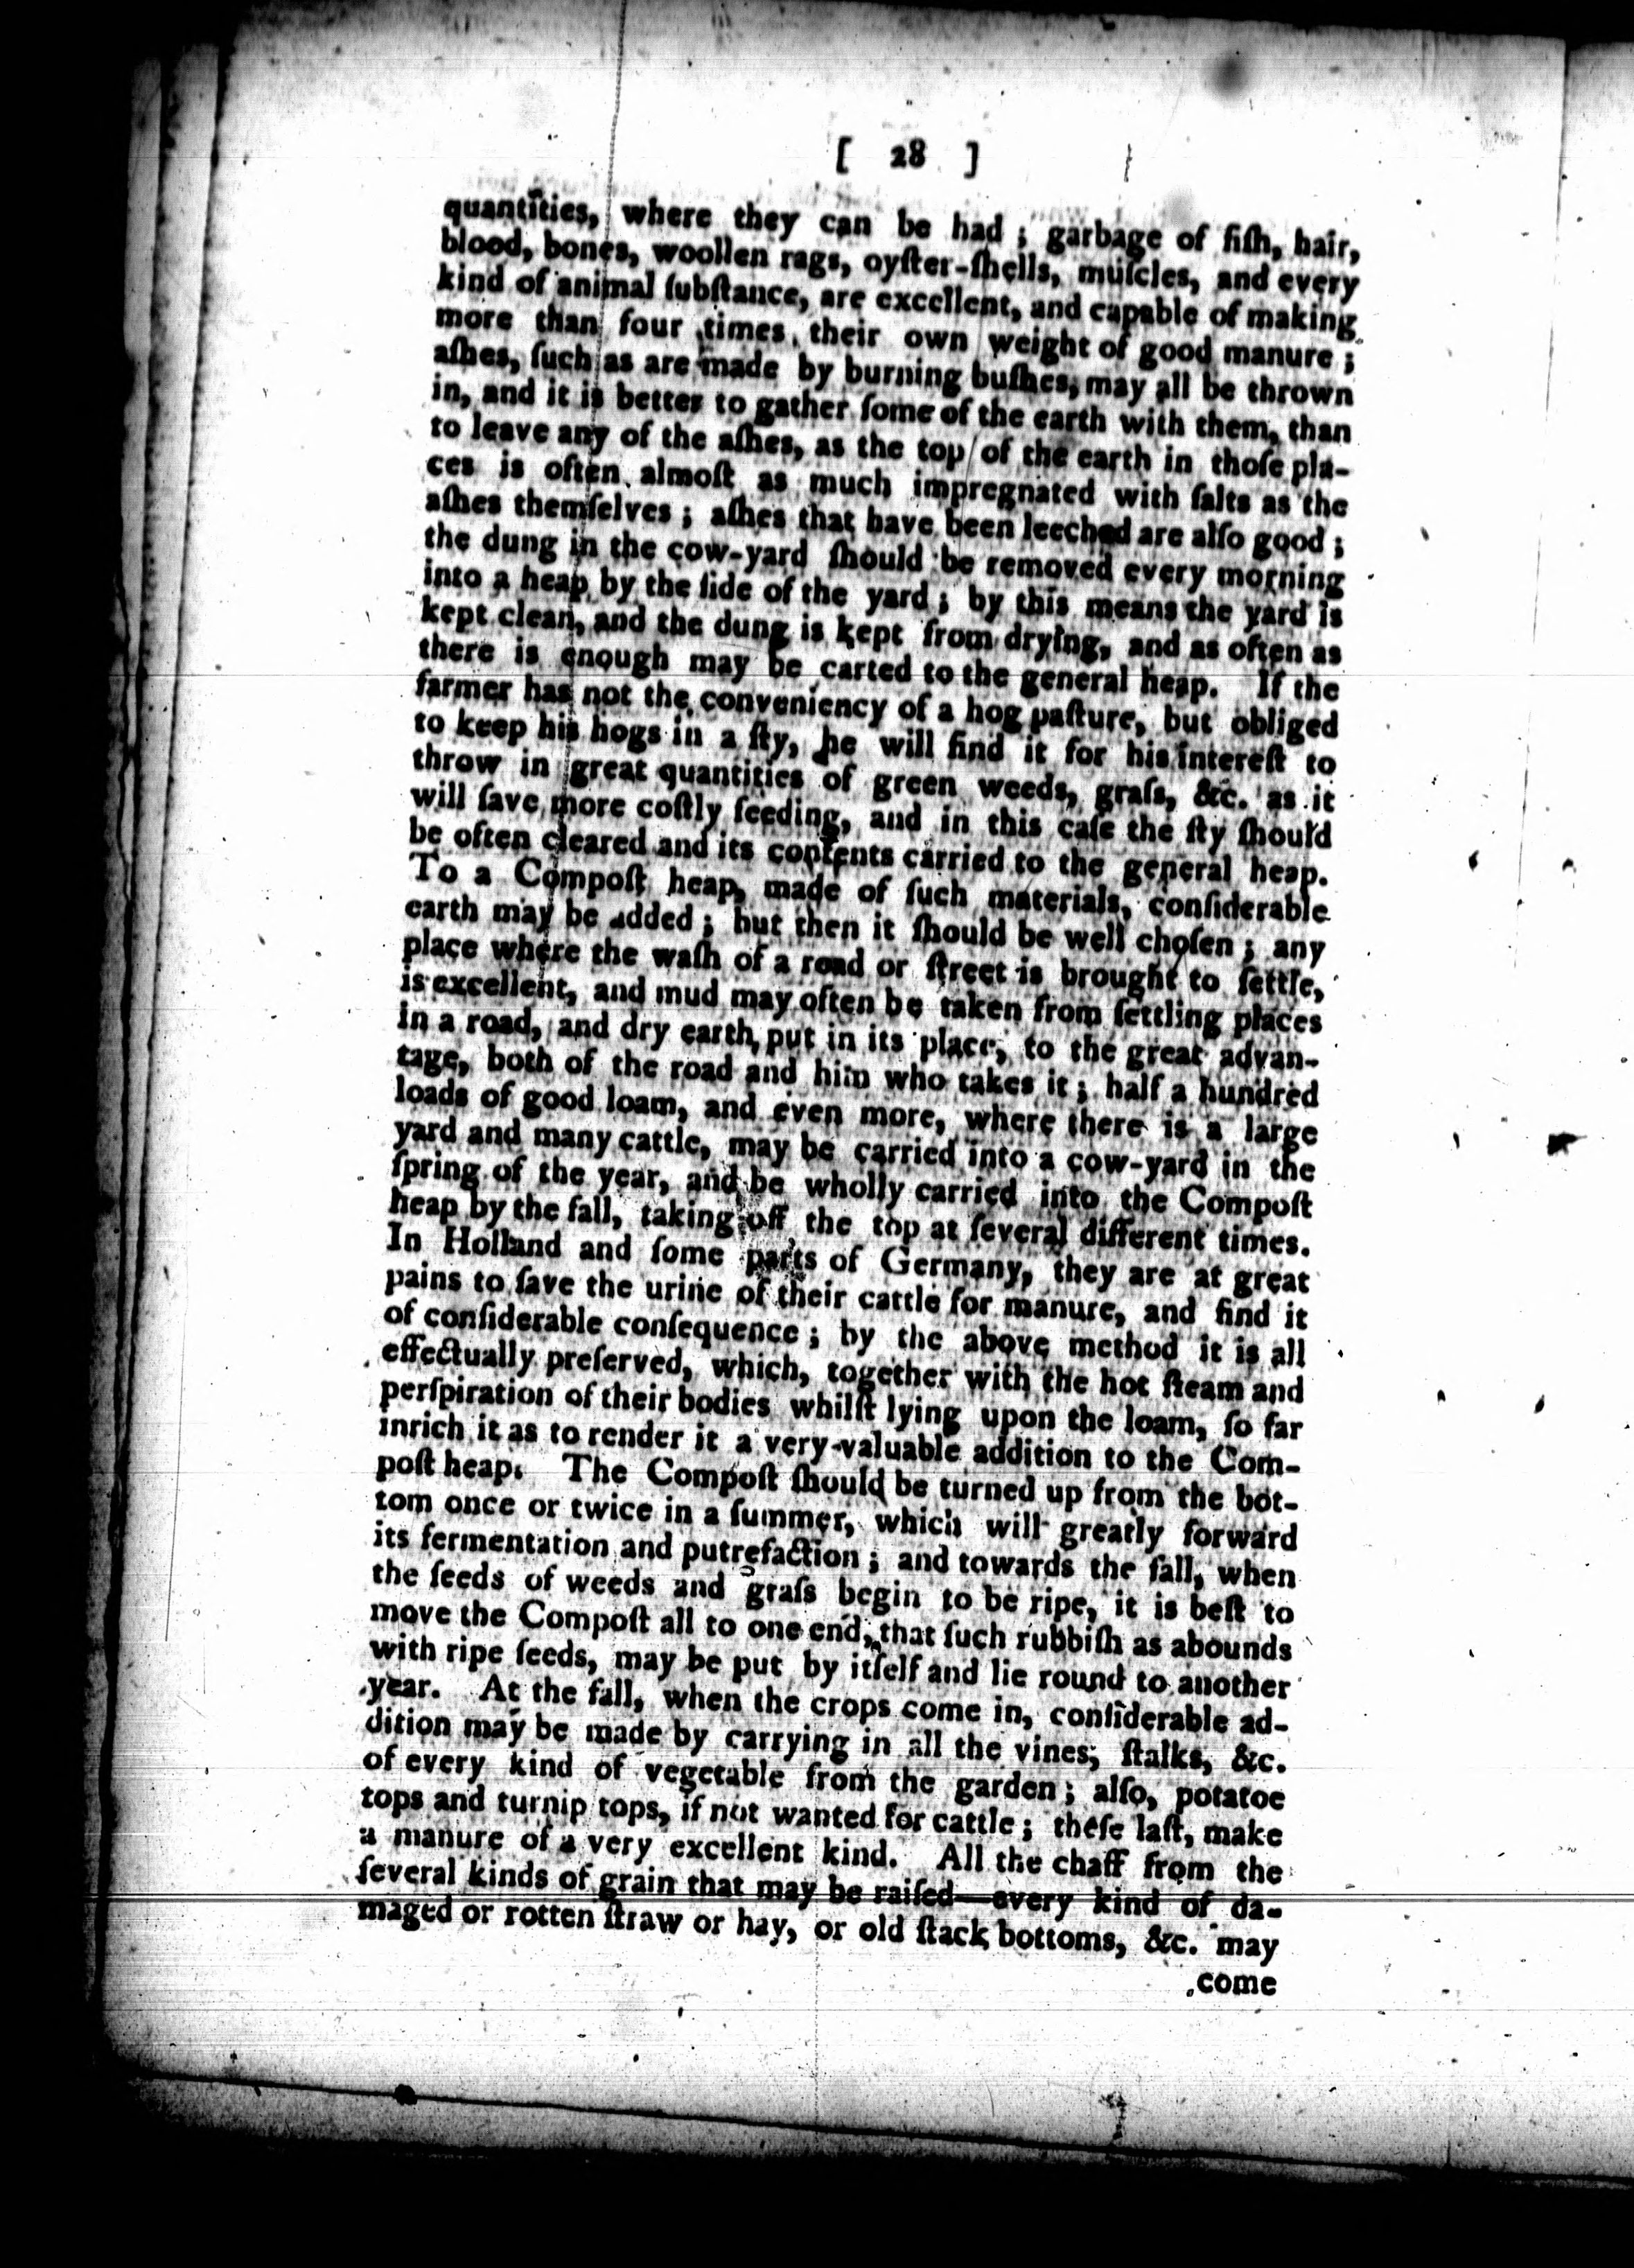 [ 28 ]
quantities, where they can be had ; garbage of fiſh, hair,
blood, bones, woollen rags, oyſter-ſhells, muſcles, and every
kind of animal ſubſtance, are excellent, and capable of making
more than four times their own weight of good manure ;
aſhes, ſuch as are made by burning buſhes, may all be thrown
in, and it is better to gather ſome of the earth with them, than
to leave any of the aſhes, as the top of the earth in thoſe pla-
ces is often almoſt as much impregnated with ſalts as the
aſhes themſelves ; aſhes that have been leeched are alſo good ;
the dung in the cow-yard ſhould be removed every morning
into a heap by the ſide of the yard ; by this means the yard is
kept clean, and the dung is kept from drying, and as often as
there is enough may be carted to the general heap. If the
farmer has not the conveniency of a hog paſture, but obliged
to keep his hogs in a ſty, he will find it for his intereſt to
throw in great quantities of green weeds, graſs, &c. as it
will ſave more coſtly feeding, and in this caſe the ſty ſhould
be often cleared and its contents carried to the general heap.
To a Compoſt heap, made of ſuch materials, conſiderable
earth may be added ; but then it ſhould be well choſen ; any
place where the waſh of a road or ſtreet is brought to ſettle,
is excellent, and mud may often be taken from ſettling places
in a road, and dry earth put in its place, to the great advan-
tage, both of the road and him who takes it ; half a hundred
loads of good loam, and even more, where there is a large
yard and many cattle, may be carried into a cow-yard in the
ſpring of the year, and be wholly carried into the Compoſt
heap by the fall, taking off the top at ſeveral different times.
In Holland and ſome parts of Germany, they are at great
pains to ſave the urine of their cattle for manure, and find it
of conſiderable conſequence ; by the above method it is all
effectually preſerved, which, together with the hot ſteam and
perſpiration of their bodies whilſt lying upon the loam, ſo far
inrich it as to render it a very valuable addition to the Com-
poſt heap. The Compoſt ſhould be turned up from the bot-
tom once or twice in a ſummer, which will greatly forward
its fermentation and putrefaction ; and towards the fall, when
the ſeeds of weeds and graſs begin to be ripe, it is beſt to
move the Compoſt all to one end, that ſuch rubbiſh as abounds
with ripe ſeeds, may be put by itſelf and lie round to another
year. At the fall, when the crops come in, conſiderable ad-
dition may be made by carrying in all the vines, ſtalks, &c.
of every kind of vegetable from the garden ; alſo, potatoe
tops and turnip tops, if not wanted for cattle ; theſe laſt, make
a manure of a very excellent kind. All the chaff from the
ſeveral kinds of grain that may be raiſed—every kind of da-
maged or rotten ſtraw or hay, or old ſtack bottoms, &c. may
come